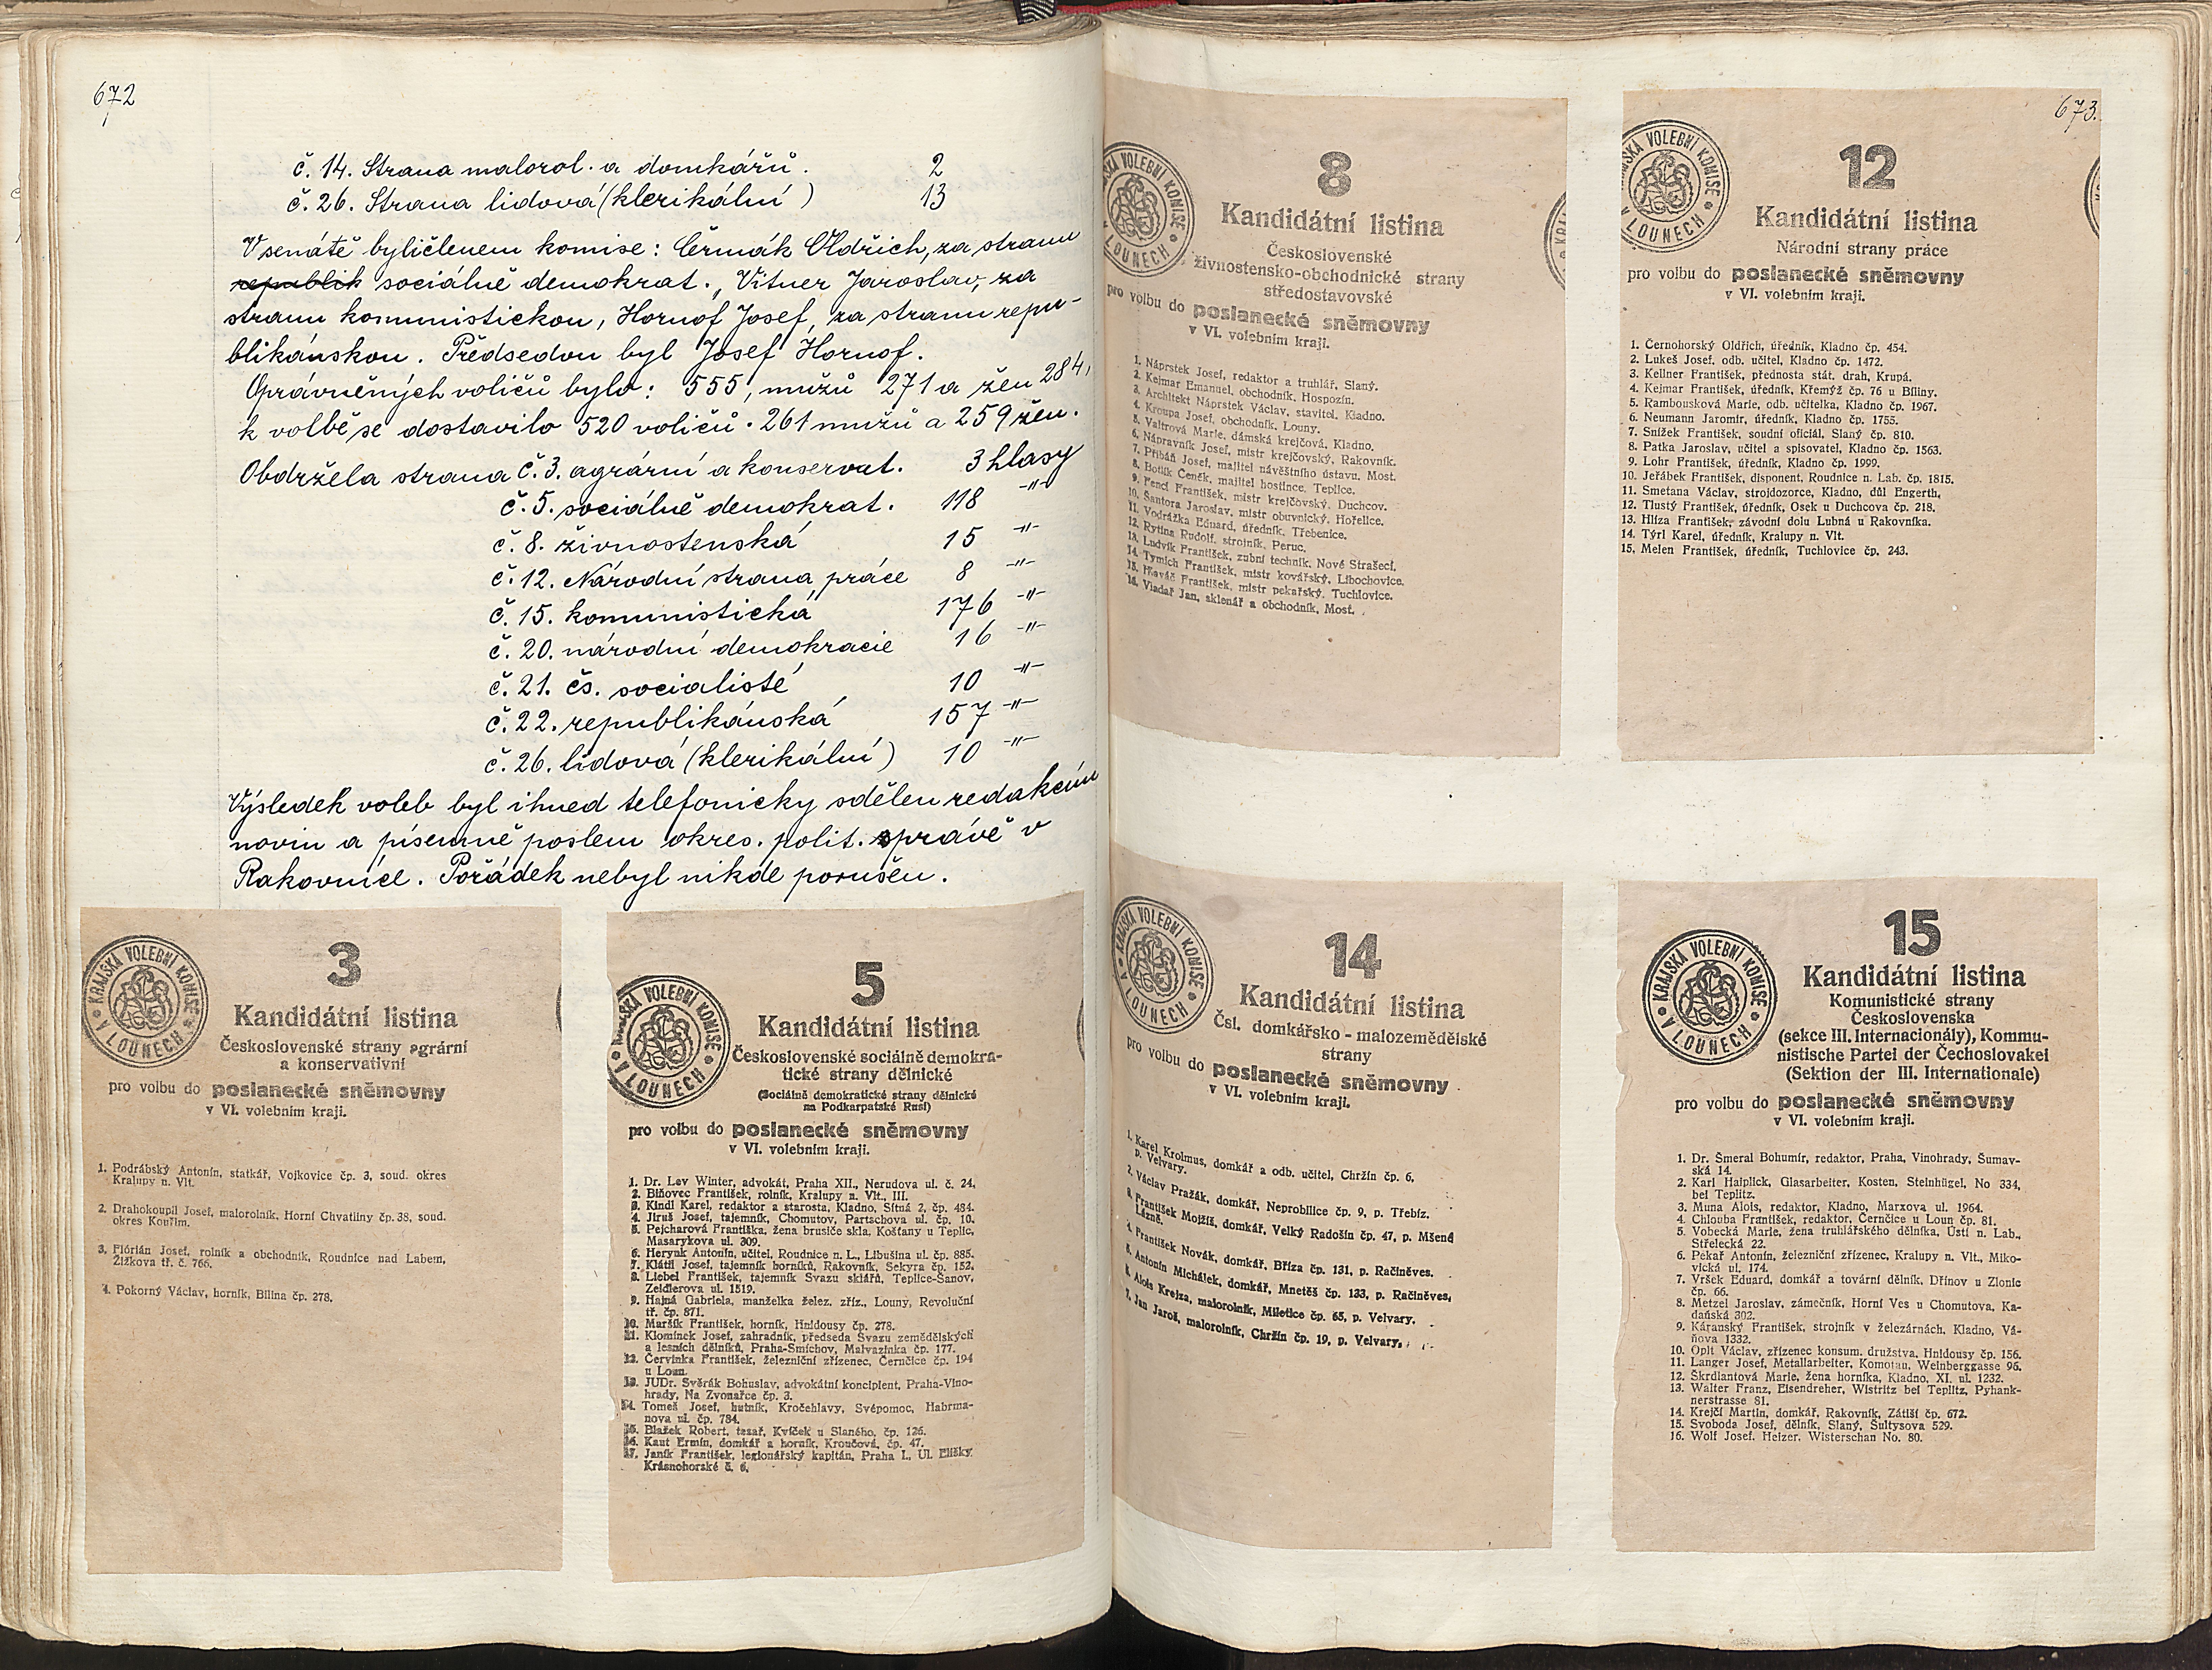 672
č. 14. Strana malorol. a domkářů. 2
č. 26. Strana lidová (klerikální) 13
V senátě byli členem komise: Čermák Oldřich, za stranu
republik sociálně demokrat., Vitner Jaroslav, za
stranu komunistickou, Hornof Josef, za stranu repu-
blikánskou. Předsedou byl Josef Hornof.
Oprávněných voličů bylo: 555, mužů 271 a žen 284,
k volbě se dostavilo 520 voličů. 261 mužů a 259 žen.
Obdržela strana č. 3. agrární a konservat. 3 hlasy
č. 5. sociálně demokrat. 118 -"-
č. 8. živnostenská 15 -"-
č. 12. Národní strana práce 8 -"-
č. 15. komunistická 176 -"-
č. 20. národní demokracie 16 -"-
č. 21. čs. socialisté 10 -"-
č. 22. republikánská 157 -"-
č. 26. lidová (klerikální) 10 -"-
Výsledek voleb byl ihned telefonicky sdělen redakcím
novin a písemně poslem okres. polit. správě v
Rakovníce. Pořádek nebyl nikde porušen.
KRAJSKÁ VOLEBNÍ KOMISE V LOUNECH
3
Kandidátní listina
Československé strany agrární
a konservativní
pro volbu do poslanecké sněmovny
v VI. volebním kraji.
1. Podrábský Antonín, statkář, Vojkovice čp. 3, soud. okres
Kralupy n. Vlt.
2. Drahokoupil Josef, malorolník, Horní Chvatliny čp. 38, soud.
okres Kouřim.
3. Flórián Josef, rolník a obchodník, Roudnice nad Labem,
Žižkova tř. č. 766.
4. Pokorný Václav, horník, Bílina čp. 278.
KRAJSKÁ VOLEBNÍ KOMISE V LOUNECH
5
Kandidátní listina
Československé sociálně demokra-
tické strany dělnické
(Sociálně demokratické strany dělnické
na Podkarpatské Rusi)
pro volbu do poslanecké sněmovny
v VI. volebním kraji.
1. Dr. Lev Winter, advokát, Praha XII., Nerudova ul. č. 24.
2. Blňovec František, rolník, Kralupy n. Vlt., III.
3. Kindl Karel, redaktor a starosta, Kladno, Sítná 2, čp. 484.
4. Jiruš Josef, tajemník, Chomutov, Partschova ul. čp. 10.
5. Pejcharová Františka, žena brusiče skla, Košťany u Teplic,
Masarykova ul. 309.
6. Herynk Antonín, učitel, Roudnice n. L., Libušina ul. čp. 885.
7. Klátil Josef, tajemník horníků, Rakovník, Sekyra čp. 152.
8. Liebel František, tajemník Svazu sklářů, Teplice-Šanov,
Zeidlerova ul. 1519.
9. Hajná Gabriela, manželka želez. zříz., Louny, Revoluční
tř. čp. 871.
10. Maršík František, horník, Hnidousy čp. 278.
11. Klomínek Josef, zahradník, předseda Svazu zemědělských
a lesních dělníků, Praha-Smíchov, Malvazinka čp. 177.
12. Červinka František, železniční zřízenec, Černčice čp. 194
u Loun.
13. JUDr. Svěrák Bohuslav, advokátní koncipient, Praha-Vino-
hrady, Na Zvonařce čp. 3.
14. Tomeš Josef, hutník, Kročehlavy, Svépomoc, Habrma-
nova ul. čp. 784.
15. Blažek Robert, tesař, Kvíček u Slaného, čp. 126.
16. Kaut Ermín, domkář a horník, Kroučová, čp. 47.
17. Janík František, legionářský kapitán, Praha I., Ul. Elišky
Krásnohorské č. 6.
673.
SKÁ VOLEBNÍ KOMISE V LOUNECH
8
Kandidátní listina
Československé
živnostensko-obchodnické strany
středostavovské
pro volbu do poslanecké sněmovny
v VI. volebním kraji.
1. Náprstek Josef, redaktor a truhlář, Slaný.
2. Kejmar Emanuel, obchodník, Hospozín.
3. Architekt Náprstek Václav, stavitel, Kladno.
4. Kroupa Josef, obchodník, Louny.
5. Valtrová Marie, dámská krejčová, Kladno.
6. Nápravník Josef, mistr krejčovský, Rakovník.
7. Přibáň Josef, majitel návěštního ústavu, Most.
8. Botlík Čeněk, majitel hostince, Teplice.
9. Fencl František, mistr krejčovský, Duchcov.
10. Šantora Jaroslav, mistr obuvnický, Hořelice.
11. Vodrážka Eduard, úředník, Třebenice.
12. Rytina Rudolf, strojník, Peruc.
13. Ludvík František, zubní technik, Nové Strašecí.
14. Tymich František, mistr kovářský, Libochovice.
15. Hlaváč František, mistr pekařský, Tuchlovice.
16. Vladař Jan, sklenář a obchodník, Most.
JSKÁ VOLEBNÍ KOMISE V LOUNECH
12
Kandidátní listina
Národní strany práce
pro volbu do poslanecké sněmovny
v VI. volebním kraji.
1. Černohorský Oldřich, úředník, Kladno čp. 454.
2. Lukeš Josef, odb. učitel, Kladno čp. 1472.
3. Kellner František, přednosta stát. drah, Krupá.
4. Kejmar František, úředník, Křemýž čp. 76 u Bíliny.
5. Rambousková Marie, odb. učitelka, Kladno čp. 1967.
6. Neumann Jaromír, úředník, Kladno čp. 1755.
7. Snížek František, soudní oficiál, Slaný čp. 810.
8. Patka Jaroslav, učitel a spisovatel, Kladno čp. 1563.
9. Lohr František, úředník, Kladno čp. 1999.
10. Jeřábek František, disponent, Roudnice n. Lab. čp. 1815.
11. Smetana Václav, strojdozorce, Kladno, důl Engerth.
12. Tlustý František, úředník, Osek u Duchcova čp. 218.
13. Hlíza František, závodní dolu Lubná u Rakovníka.
14. Týrl Karel, úředník, Kralupy n. Vlt.
15. Melen František, úředník, Tuchlovice čp. 243.
KRAJSKÁ VOLEBNÍ KOMISE V LOUNECH
14
Kandidátní listina
Čsl. domkářsko - malozemědělské
strany
pro volbu do poslanecké sněmovny
v VI. volebním kraji.
1. Karel Krolmus, domkář a odb. učitel, Chržín čp. 6,
p. Velvary.
2. Václav Pražák, domkář, Neprobilice čp. 9, p. Třebíz.
3. František Mojžíš, domkář, Velký Radošín čp. 47, p. Mšené
Lázně.
4. František Novák, domkář, Bříza čp. 131, p. Račiněves.
5. Antonín Michálek, domkář, Mnetěš čp. 133, p. Račiněves.
6. Alois Krejza, malorolník, Miletice čp. 65, p. Velvary.
7. Jan Jaroš, malorolník, Chržín čp. 19, p. Velvary.
KRAJSKÁ VOLEBNÍ KOMISE V LOUNECH
15
Kandidátní listina
Komunistické strany
Československa
(sekce III. Internacionály), Kommu-
nistische Partei der Čechoslovakei
(Sektion der III. Internationale)
pro volbu do poslanecké sněmovny
v VI. volebním kraji.
1. Dr. Šmeral Bohumír, redaktor, Praha, Vinohrady, Šumav-
ská 14.
2. Karl Haiplick, Glasarbeiter, Kosten, Steinhügel, No 334,
bei Teplitz.
3. Muna Alois, redaktor, Kladno, Marxova ul. 1964.
4. Chlouba František, redaktor, Černčice u Loun čp. 81.
5. Vobecká Marie, žena truhlářského dělníka, Ústí n. Lab.,
Střelecká 22.
6. Pekař Antonín, železniční zřízenec, Kralupy n. Vlt., Miko-
vická ul. 174.
7. Vršek Eduard, domkář a tovární dělník, Dřínov u Zlonic
čp. 66.
8. Metzel Jaroslav, zámečník, Horní Ves u Chomutova, Ka-
daňská 302.
9. Káranský František, strojník v železárnách, Kladno, Vá-
ňova 1332.
10. Oplt Václav, zřízenec konsum. družstva, Hnidousy čp. 156.
11. Langer Josef, Metallarbeiter, Komotau, Weinberggasse 96.
12. Škrdlantová Marie, žena horníka, Kladno, XI. ul. 1232.
13. Walter Franz, Eisendreher, Wistritz bei Teplitz, Pyhank-
nerstrasse 81.
14. Krejčí Martin, domkář, Rakovník, Zátiší čp. 672.
15. Svoboda Josef, dělník, Slaný, Šultysova 529.
16. Wolf Josef, Heizer, Wisterschan No. 80.